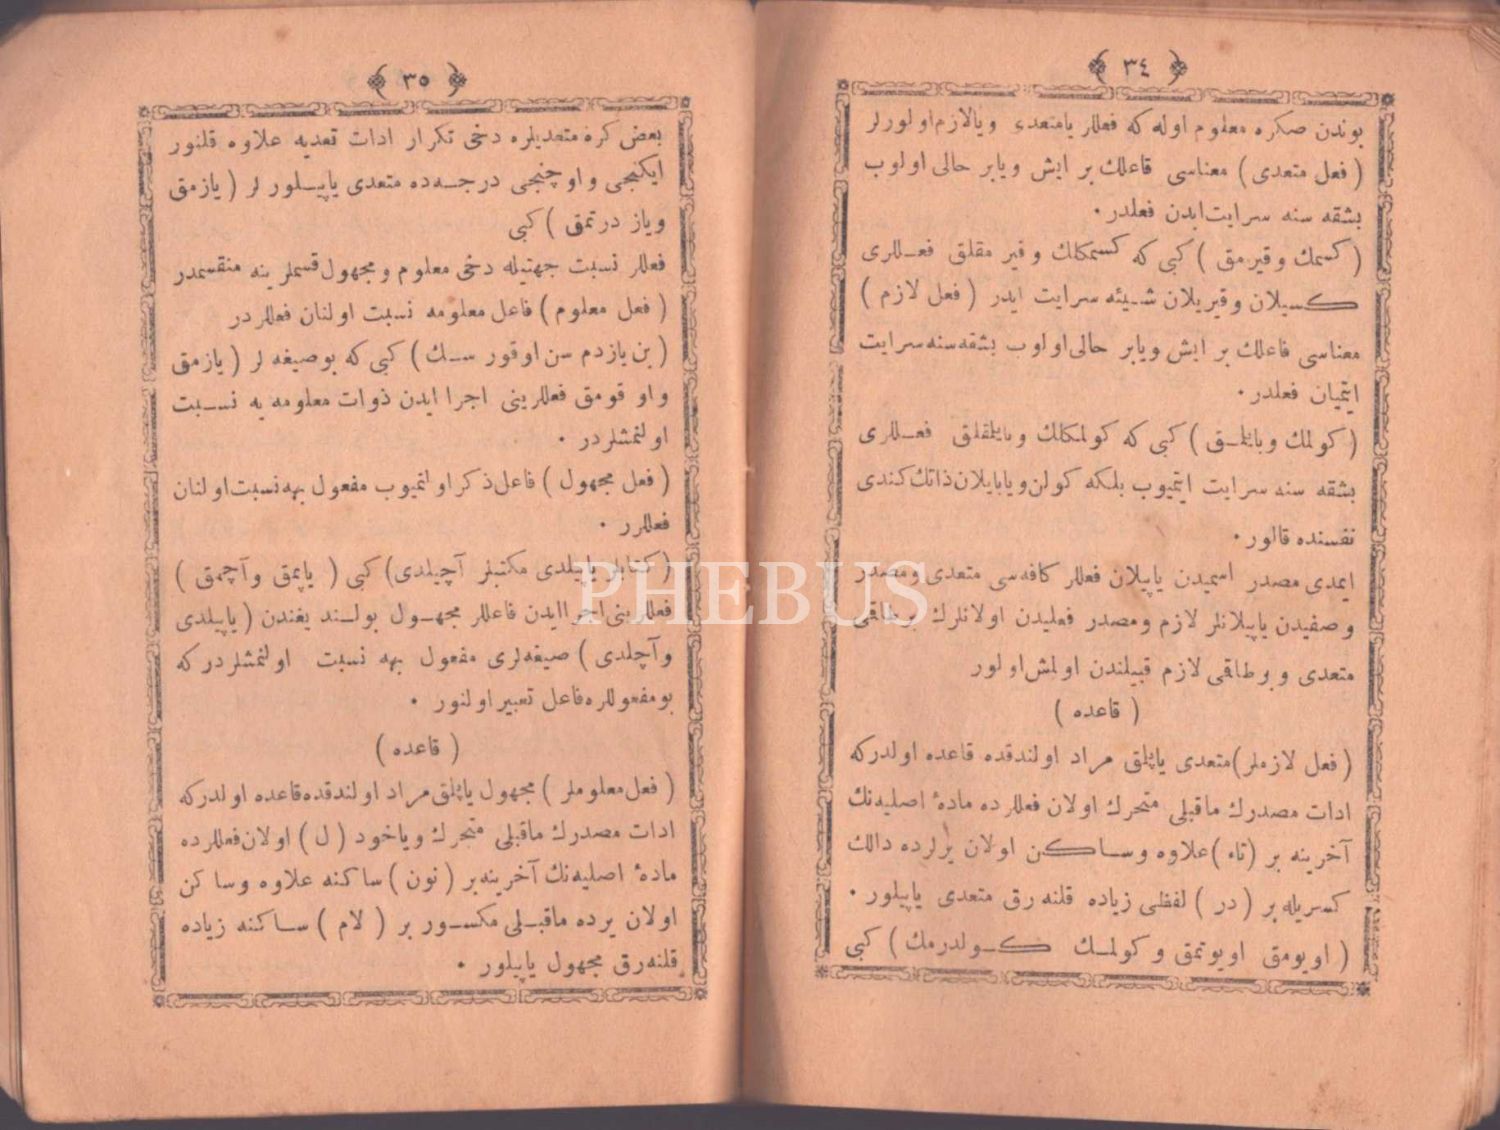 ﴿ ٣٤ ﴾
بوندن صكره معلوم اوله كه فعللر يا متعدى ويالازم اولورلر
( فعل متعدى ) معناسى فاعلك بر ايش ويابر حالى اولوب
بشقه سنه سرايت ايدن فعلدر ٠
( كسمك وقيرمق ) كبى كه كسمكلك وقيرمقلق فعللرى
كسيلان وقيريلان شيئه سرايت ايدر ( فعل لازم )
معناسى فاعلك بر ايش ويابر حالى اولوب بشقه سنه سرايت
ايتميان فعلدر ٠
( كولمك وبايلمق ) كبى كه كولمكلك وبايلمقلق فعللرى
بشقه سنه سرايت ايتميوب بلكه كولن ويابايلان ذاتك كندى
نفسنده قالور ٠
ايمدى مصدر اسميدن ياپيلان فعللر كافه سى متعدى ومصدر
وصفيدن ياپيلانلر لازم ومصدر فعليدن اولانلرك بر طاقمى
متعدى و بر طاقمى لازم قبيلندن اولمش اولور
( قاعده )
( فعل لازملر ) متعدى ياپلمق مراد اولندقده قاعده اولدركه
ادات مصدرك ماقبلى متحرك اولان فعللرده مادۀ اصليه نك
آخرينه بر ( تاء ) علاوه وساكن اولان يرلرده دالك
كسريله بر ( در ) لفظى زياده قلنه رق متعدى ياپيلور ٠
( اويومق اويوتمق و كولمك كولدرمك ) كبى
﴿ ٣٥ ﴾
بعض كره متعديلره دخى تكرار ادات تعديه علاوه قلنور
ايكنجى و اوچنجى درجه ده متعدى ياپيلور لر ( يازمق
وياز درتمق ) كبى
فعللر نسبت جهتيله دخى معلوم و مجهول قسملرينه منقسمدر
( فعل معلوم ) فاعل معلومه نسبت اولنان فعللردر
( بن يازدم سن اوقورسك ) كبى كه بوصيغه لر ( يازمق
و اوقومق فعللرينى اجرا ايدن ذوات معلومه يه نسبت
اولنمشلردر ٠
( فعل مجهول ) فاعل ذكر اولنميوب مفعول بهه نسبت اولنان
فعللرر ٠
( كتابلر ياپيلدى مكتبلر آچيلدى ) كبى ( ياپمق و آچمق )
فعللرينى اجرا ايدن فاعللر مجهول بولنديغندن ( ياپيلدى
و آچلدى ) صيغه لرى مفعول بهه نسبت اولنمشلردركه
بو مفعوللره فاعل تعبير اولنور ٠
( قاعده )
( فعل معلوملر ) مجهول ياپلمق مراد اولندقده قاعده اولدركه
ادات مصدرك ماقبلى متحرك وياخود ( ل ) اولان فعللرده
مادۀ اصليه نك آخرينه بر ( نون ) ساكنه علاوه وساكن
اولان يرده ماقبلى مكسور بر ( لام ) ساكنه زياده
قلنه رق مجهول ياپيلور ٠
PHEBUS